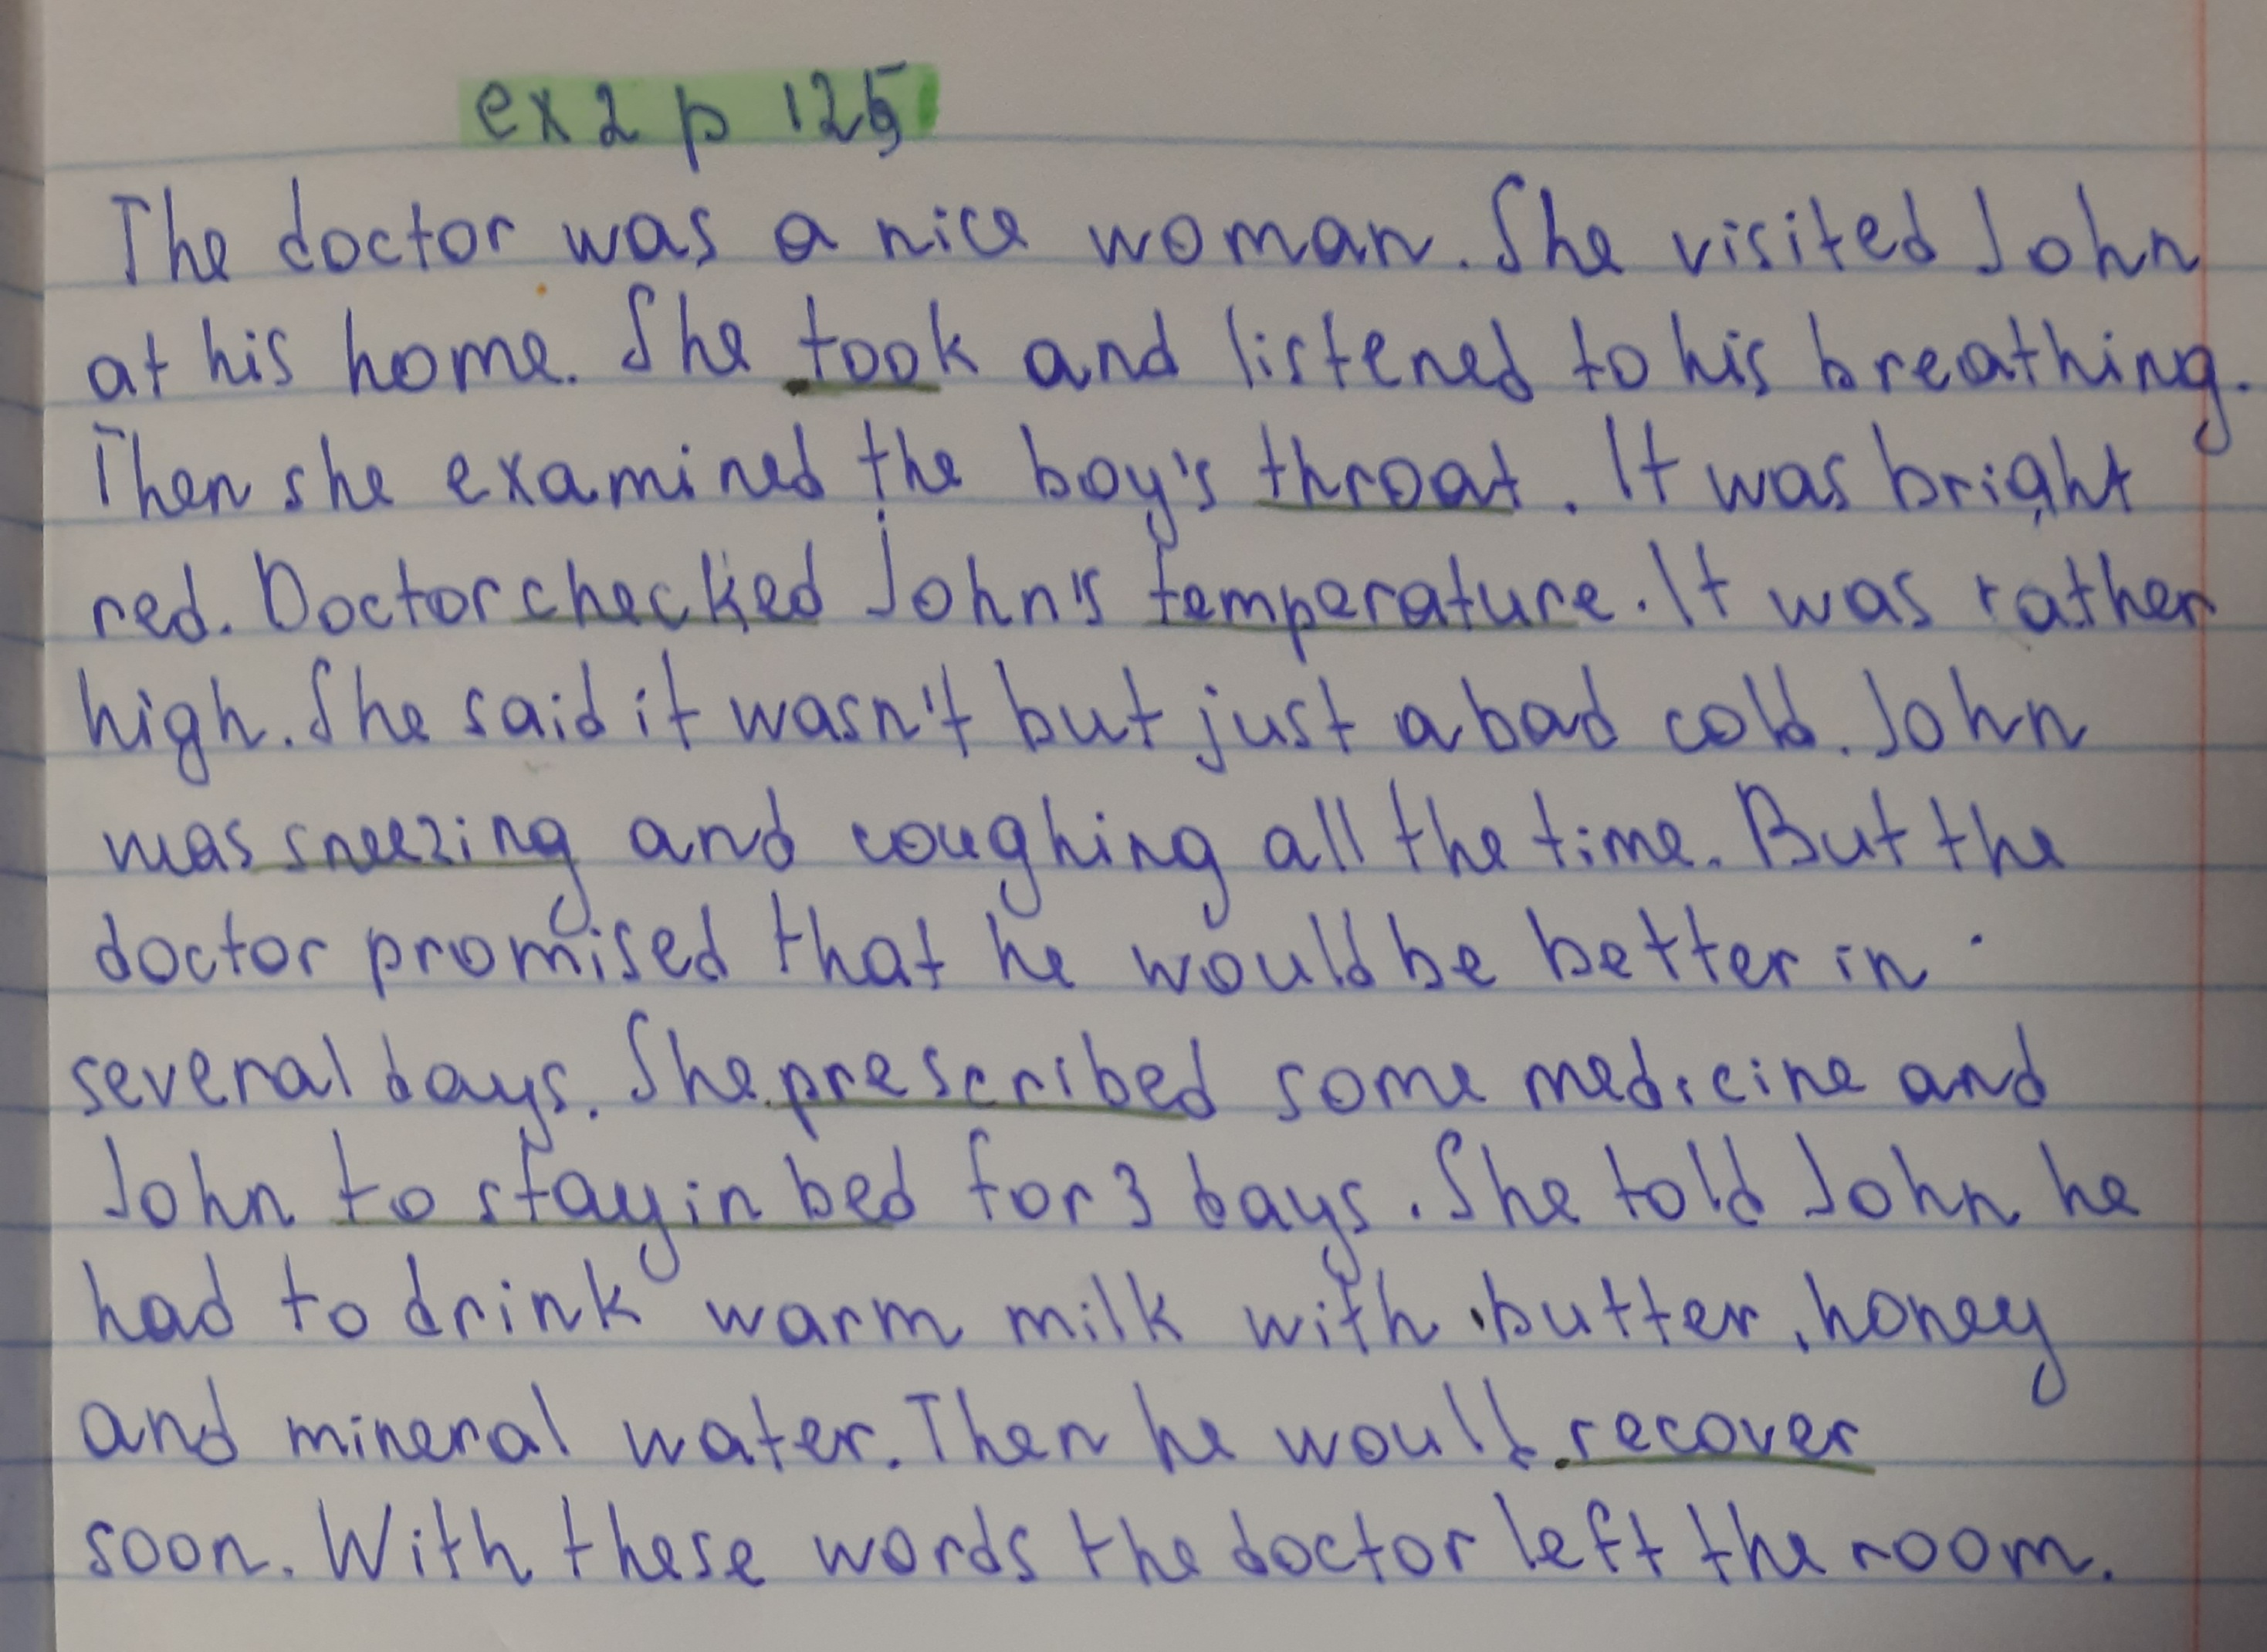 ex 2 p 125
The doctor was a nice woman. She visited John
at his home. She took and listened to his breathing.
Then she examined the boy's throat. It was bright
red. Doctor checked John's temperature. It was rather
high. She said it wasn't but just a bad cold. John
was sneezing and coughing all the time. But the
doctor promised that he would be better in
several days. She prescribed some medicine and
John to stay in bed for 3 days. She told John he
had to drink warm milk with butter, honey
and mineral water. Then he would recover
soon. With these words the doctor left the room.